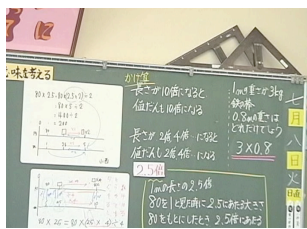 味を考える
80×2.5=80×(2.5×2)÷2
=80×5÷2
=400÷2
=200
かけ算
長さが10倍になると
値だんも10倍になる
長さが2倍、4倍…になると
値だんも2倍、4倍…になる
2.5倍
1mの長さの2.5倍
80を1と見た時に2.5にあたる大きさ
80をもとにしたとき2.5倍にあたる
1mの重さが3kgの
鉄の棒
0.8mの重さは
どれだけでしょう
3×0.8
七
月
八
日
火
日直